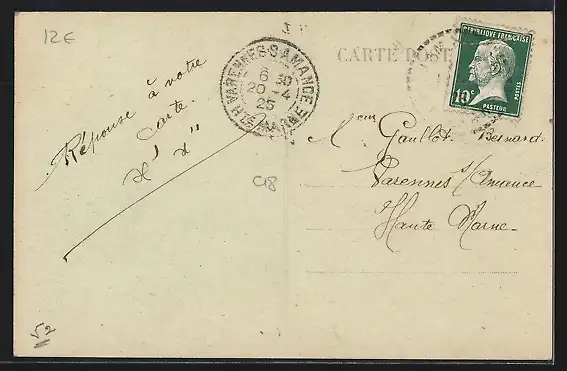 12€
CARTE POST
RÉPUBLIQUE FRANÇAISE
10c
POSTES
PASTEUR
VARENNES S AMANCE
6 30
20-4
25
HTE MARNE
Réponse à votre
carte.
C18
Gaullot Bernard.
Varennes s/Amance
Haute Marne.
V2